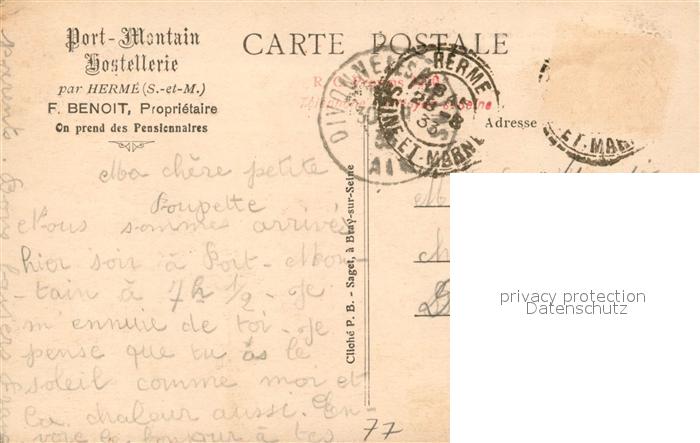 Port-Montain
Hostellerie
par HERMÉ (S.-et-M.)
F. BENOIT, Propriétaire
On prend des Pensionnaires
CARTE POSTALE
Adresse
HERMÉ
SEINE-ET-MARNE
DIVONNE
AIN
ET-MARNE
Cliché P. B. - Saget, à Bray-sur-Seine
Ma chère petite
Poupette
Nous sommes arrivés
hier soir à Port-Mon-
tain à 7h 1/2. Je
m'ennuie de toi. Je
pense que tu as le
soleil comme moi et
la chaleur aussi. En-
voie le bonjour à tes
parents. Bons baisers
77
privacy protection
Datenschutz